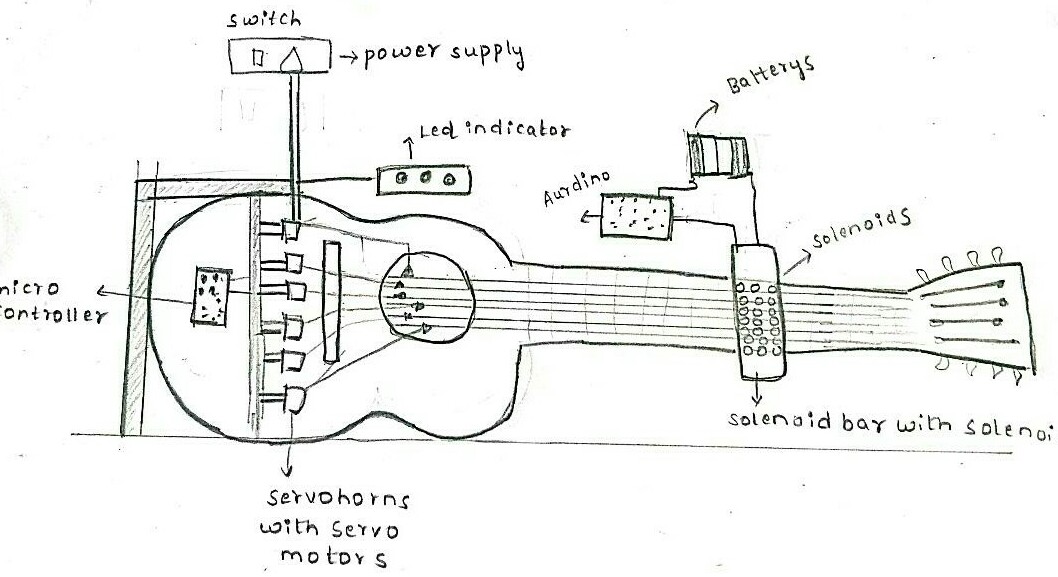 switch
power supply
Batterys
Led indicator
Aurdino
solenoids
micro
controller
solenoid bar with solenoi
servohorns
with servo
motors